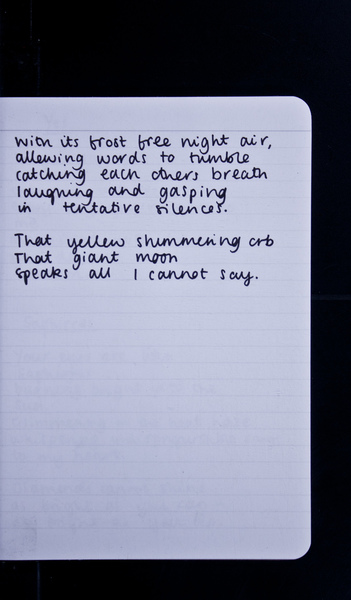 with its frost free night air,
allowing words to tumble
catching each others breath
laughing and gasping
in tentative silences.
That yellow shimmering orb
That giant moon
speaks all I cannot say.